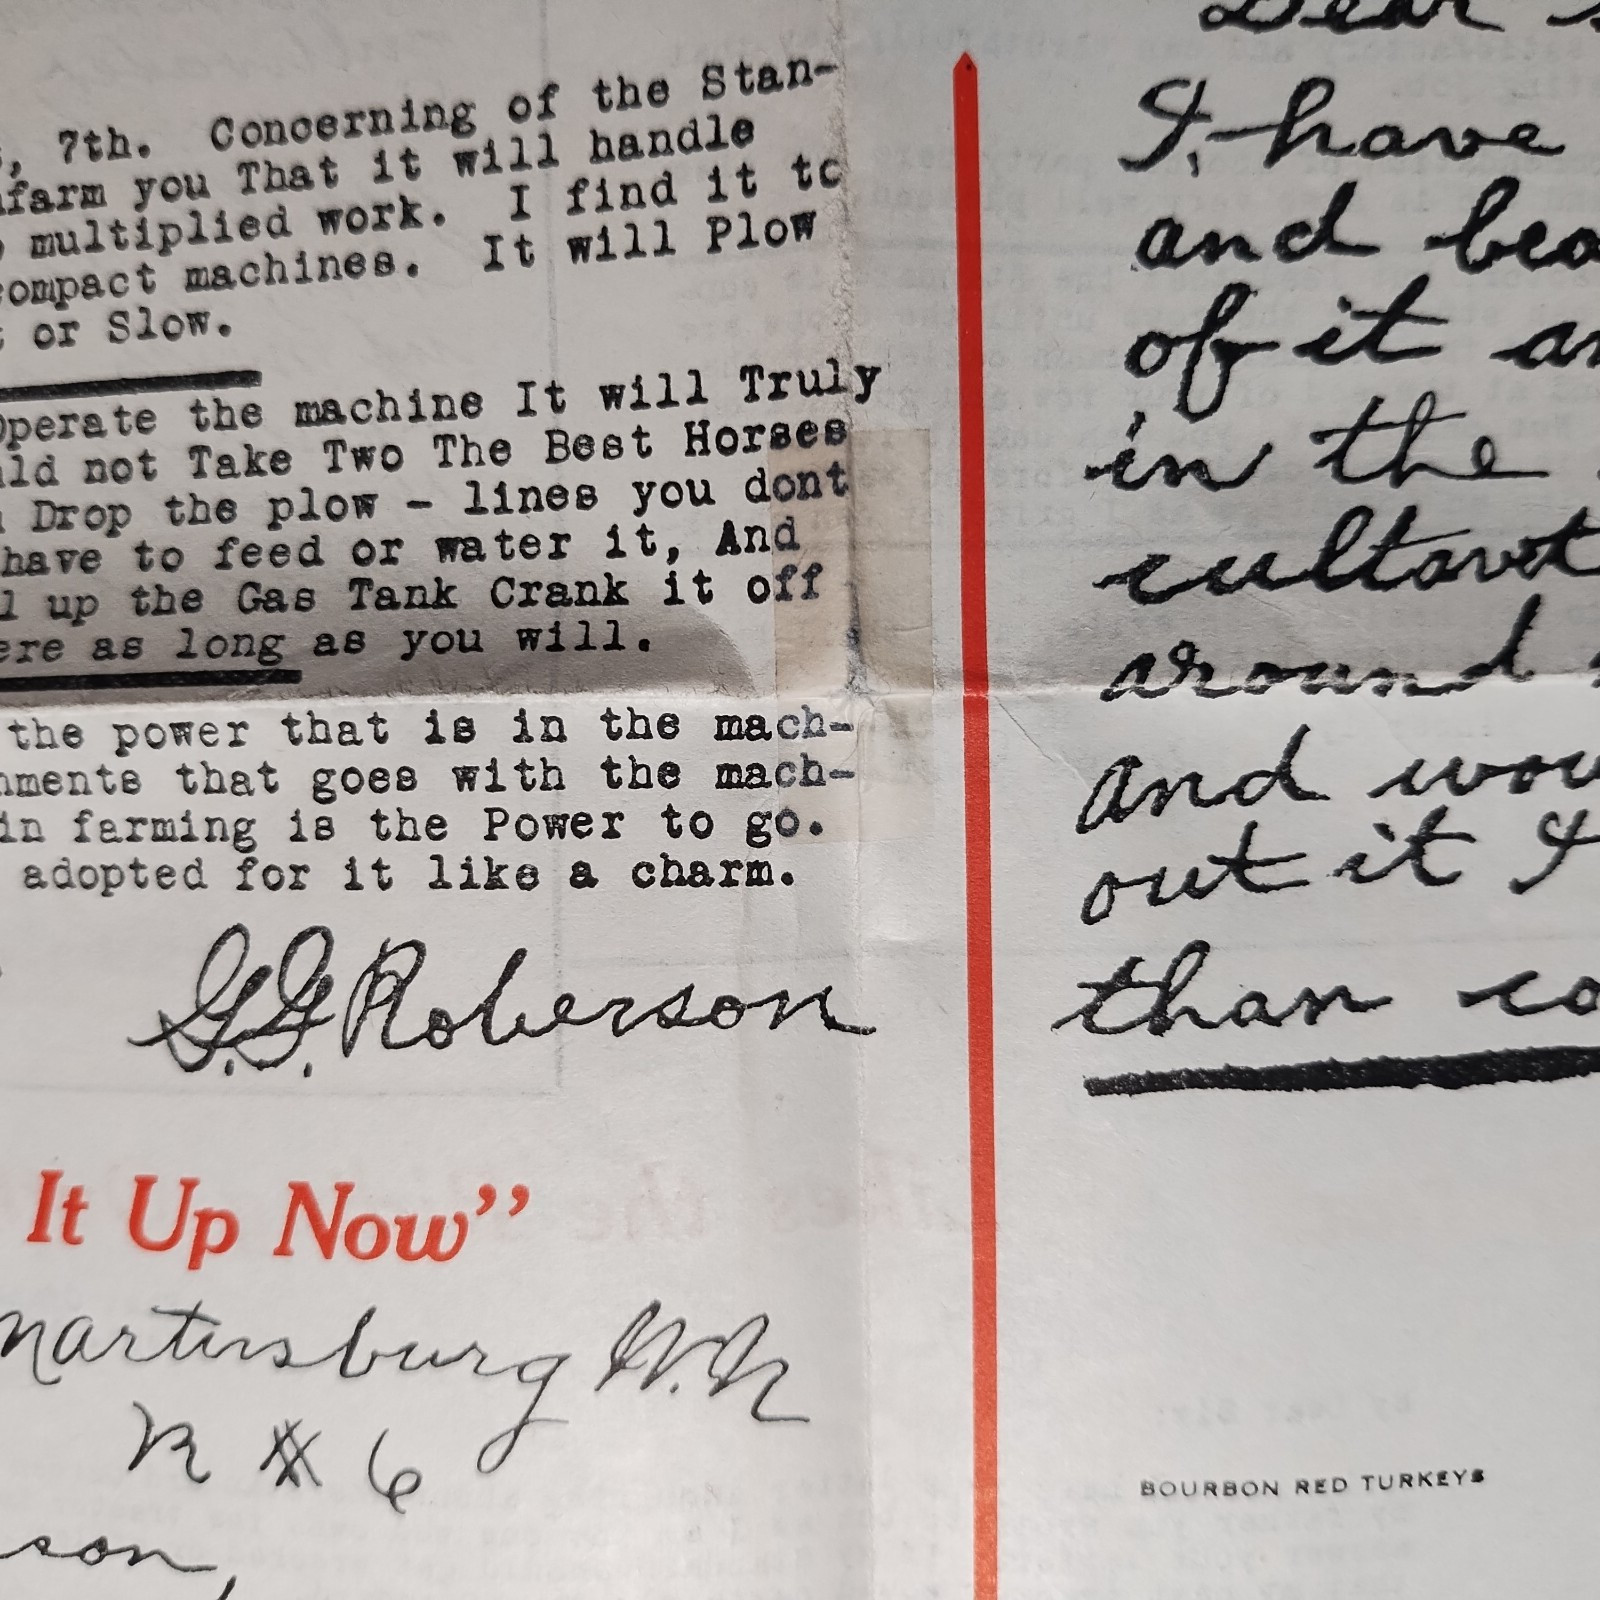 7th. Concerning of the Stan-
farm you That it will handle
multiplied work. I find it to
compact machines. It will Plow
or Slow.
Operate the machine It will Truly
ld not Take Two The Best Horses
Drop the plow - lines you dont
have to feed or water it, And
l up the Gas Tank Crank it off
ere as long as you will.
the power that is in the mach-
ments that goes with the mach-
in farming is the Power to go.
adopted for it like a charm.
G.G. Roberson
It Up Now”
Martinsburg
R # 6
son,
Dear
I, have
and bea
of it an
in the
cultavet
around
and wou
out it I
than co
BOURBON RED TURKEYS